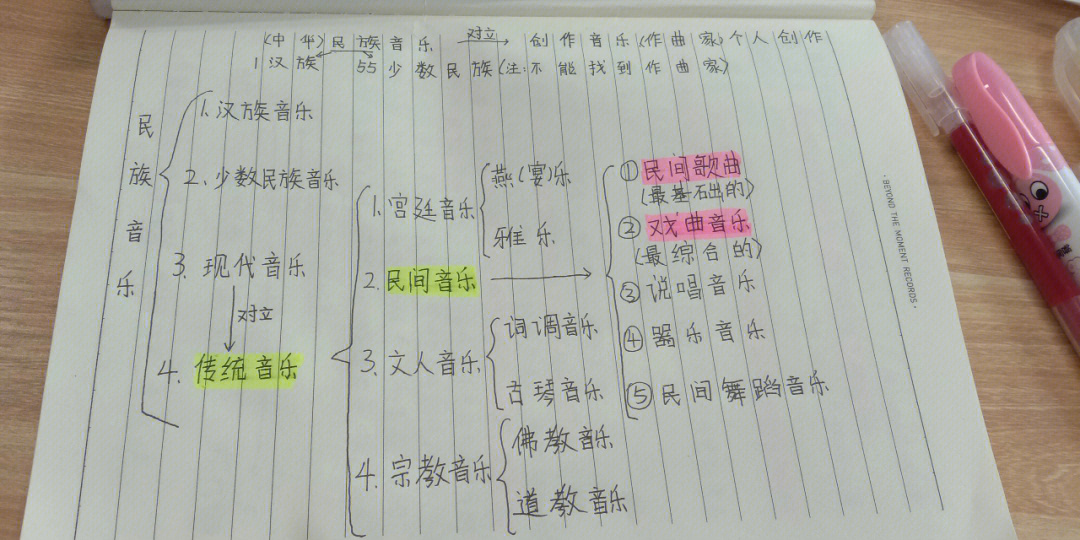 (中华)民族音乐 对立 创作音乐(作曲家)个人创作
1汉族 55少数民族(注:不能找到作曲家)
民族音乐
1.汉族音乐
2.少数民族音乐
3.现代音乐
对立
4.传统音乐
1.宫廷音乐
燕(宴)乐
雅乐
2.民间音乐
①民间歌曲
(最基础的)
②戏曲音乐
(最综合的)
③说唱音乐
④器乐音乐
⑤民间舞蹈音乐
3.文人音乐
词调音乐
古琴音乐
4.宗教音乐
佛教音乐
道教音乐
·BEYOND THE MOMENT RECORDS·